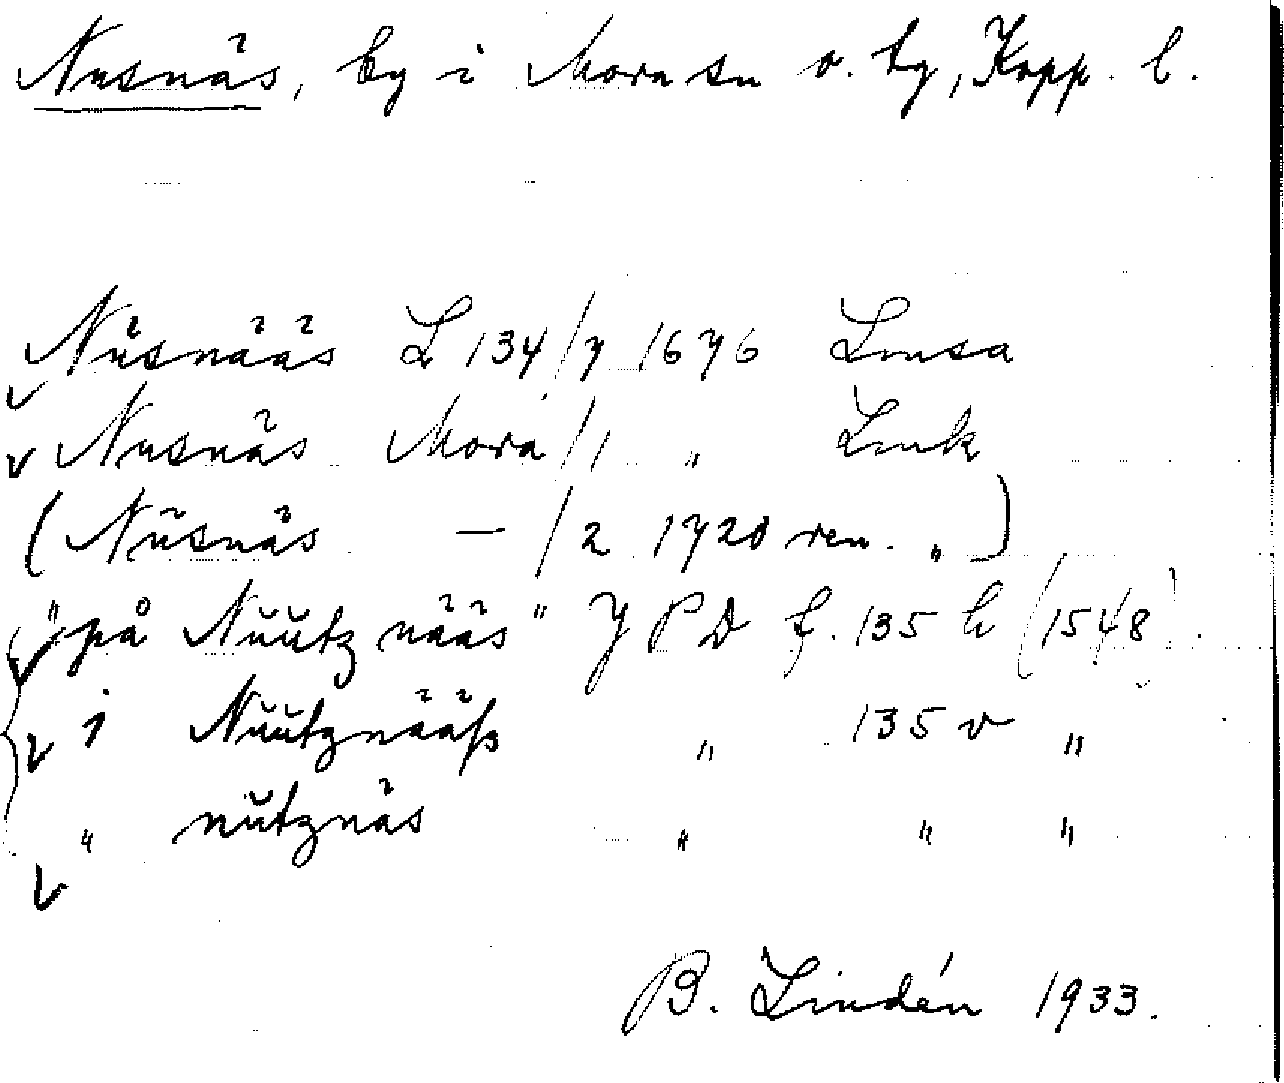 Nusnäs, by i Mora sn o. tg, Kopp. l.
Nŭsnääs L 134/7 1676 Lmsa
Nusnäs Mora/1 " Lmk
(Nŭsnäs — /2 1720 ren. ")
"på Nŭŭtz nääs" JPD f. 135 h (1548).
i Nŭŭtznääss " 135 v "
" nŭtznäs " " "
B. Lindén 1933.